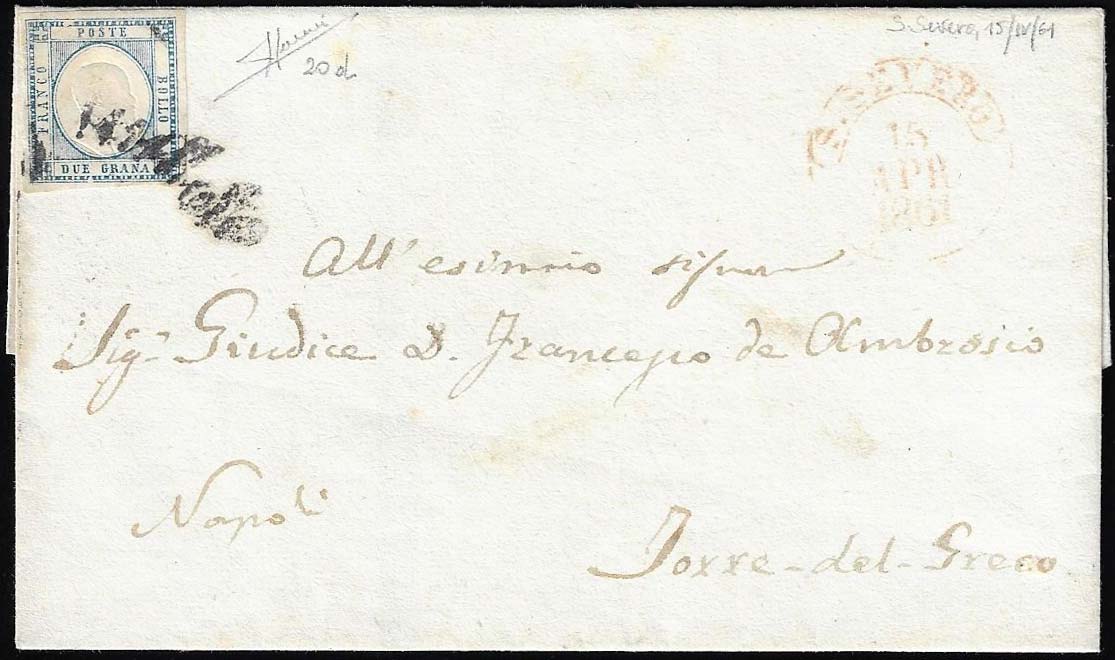 POSTE
FRANCO
BOLLO
DUE GRANA
20 d
S. Severo, 15/IV/61
S. SEVERO
15
APR
1861
All'esimio
Sigr. Giudice D. Francesco de Ambrosio
Napoli
Torre-del-Greco